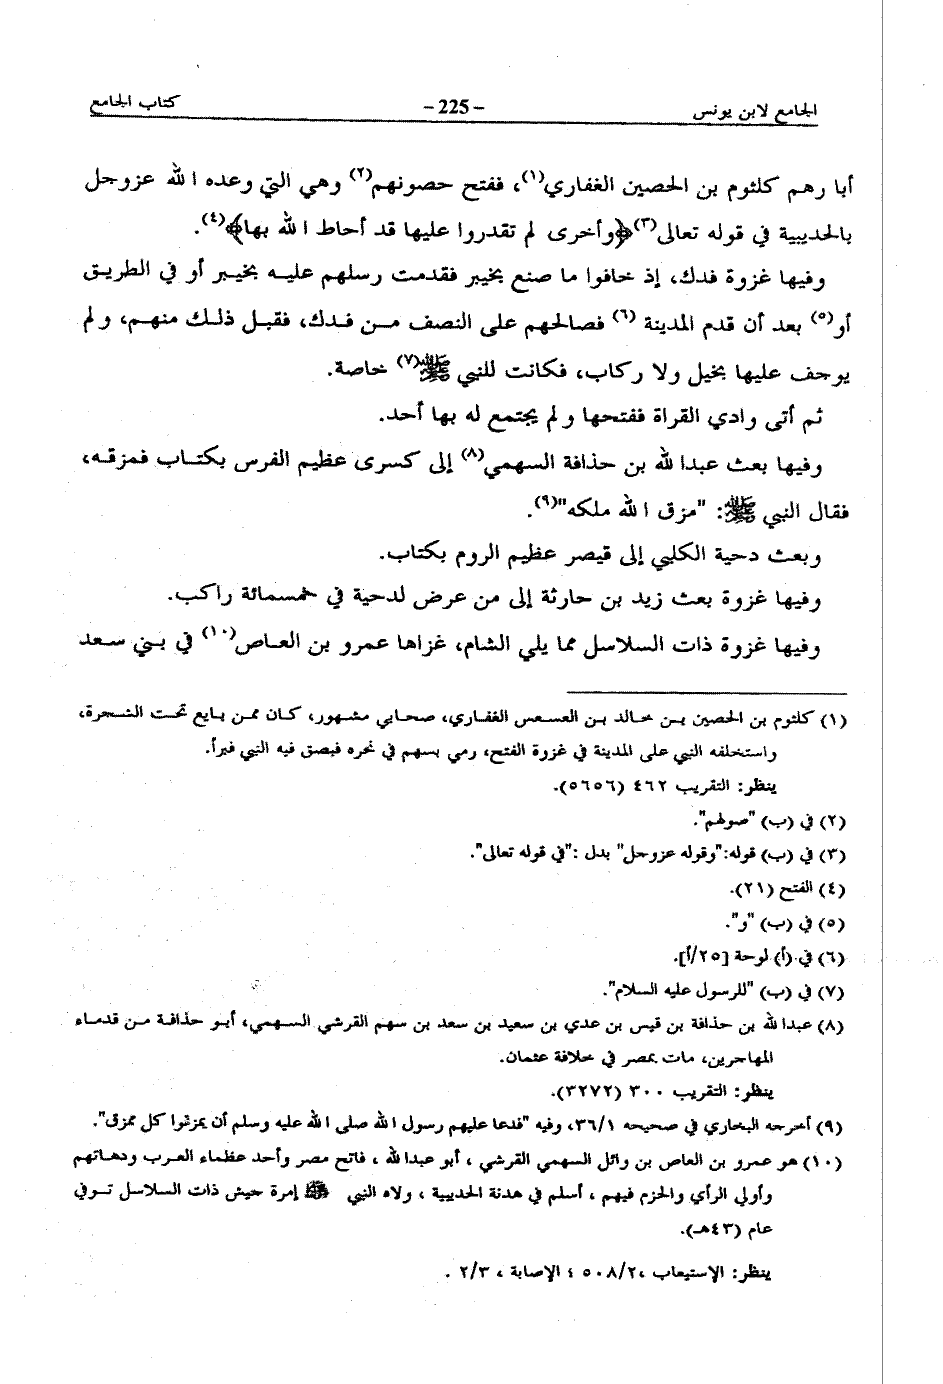 الجامع لابن يونس -225- كتاب الجامع
أبا رهم كلثوم بن الحصين الغفاري(١)، ففتح حصونهم(٢) وهي التي وعده الله عزوجل
بالحديبية في قوله تعالى(٣)﴿وأخرى لم تقدروا عليها قد أحاط الله بها﴾(٤).
وفيها غزوة فدك، إذ خافوا ما صنع بخيبر فقدمت رسلهم عليه بخيبر أو في الطريق
أو(٥) بعد أن قدم المدينة (٦) فصالحهم على النصف من فدك، فقبل ذلك منهم، ولم
يوجف عليها بخيل ولا ركاب، فكانت للنبي ﷺ(٧) خاصة.
ثم أتى وادي القراة ففتحها ولم يجتمع له بها أحد.
وفيها بعث عبدا لله بن حذافة السهمي(٨) إلى كسرى عظيم الفرس بكتاب فمزقه،
فقال النبي ﷺ: "مزق الله ملكه"(٩).
وبعث دحية الكلبي إلى قيصر عظيم الروم بكتاب.
وفيها غزوة بعث زيد بن حارثة إلى من عرض لدحية في خمسمائة راكب.
وفيها غزوة ذات السلاسل مما يلي الشام، غزاها عمرو بن العاص(١٠) في بني سعد
(١) كلثوم بن الحصين بن خالد بن العسعس الغفاري، صحابي مشهور، كان ممن بايع تحت الشجرة،
واستخلفه النبي على المدينة في غزوة الفتح، رمي بسهم في نحره فبصق فيه النبي فبرأ.
ينظر: التقريب ٤٦٢ (٥٦٥٦).
(٢) في (ب) "صولهم".
(٣) في (ب) قوله:"وقوله عزوجل" بدل :"في قوله تعالى".
(٤) الفتح (٢١).
(٥) في (ب) "و".
(٦) في (أ) لوحة [٢٥/أ].
(٧) في (ب) "للرسول عليه السلام".
(٨) عبدا لله بن حذافة بن قيس بن عدي بن سعيد بن سعد بن سهم القرشي السهمي، أبو حذافة من قدماء
المهاجرين، مات بمصر في خلافة عثمان.
ينظر: التقريب ٣٠٠ (٣٢٧٢).
(٩) أخرجه البخاري في صحيحه ٣٦/١، وفيه "فدعا عليهم رسول الله صلى الله عليه وسلم أن يمزقوا كل ممزق".
(١٠) هو عمرو بن العاص بن وائل السهمي القرشي ، أبو عبدا لله ، فاتح مصر وأحد عظماء العرب ودهاتهم
وأولي الرأي والحزم فيهم ، أسلم في هدنة الحديبية ، ولاه النبي ﷺ إمرة جيش ذات السلاسل توفي
عام (٤٣هـ).
ينظر: الإستيعاب ،٥٠٨/٢ ؛ الإصابة ، ٢/٣ .